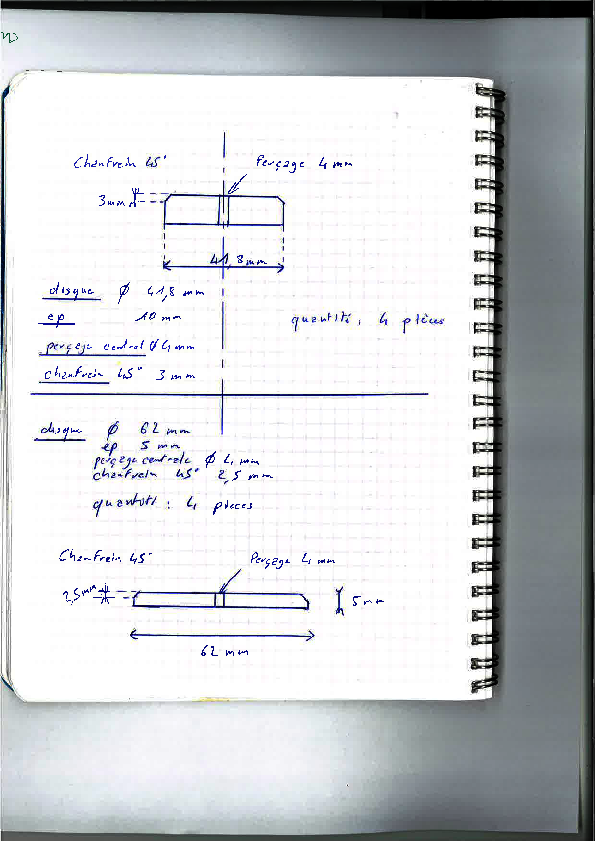 Chanfrein 45°
Perçage 4 mm
3 mm
41,8 mm
disque Ø 41,8 mm
ep 10 mm
quantité : 4 pièces
perçage central Ø 4 mm
chanfrein 45° 3 mm
disque Ø 62 mm
ep 5 mm
perçage centrale Ø 4 mm
chanfrein 45° 2,5 mm
quantité : 4 pièces
Chanfrein 45°
Perçage 4 mm
2,5 mm
5 mm
62 mm